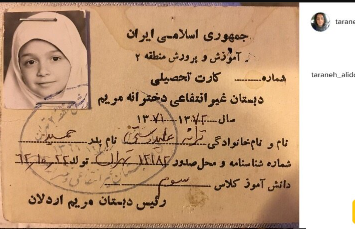 جمهوری اسلامی ایران
آموزش و پرورش منطقه ۲
شماره
کارت تحصیلی
دبستان غیر انتفاعی دخترانه مریم
سال ۱۳۷۲-۱۳۷۱
نام و نام خانوادگی ترانه علیدوستی نام پدر حمید
شماره شناسنامه و محل صدور ۱۲۱۸۲ تهران تولد
دانش آموز کلاس سوم
رئیس دبستان مریم اردلان
taraneh
taraneh_alido